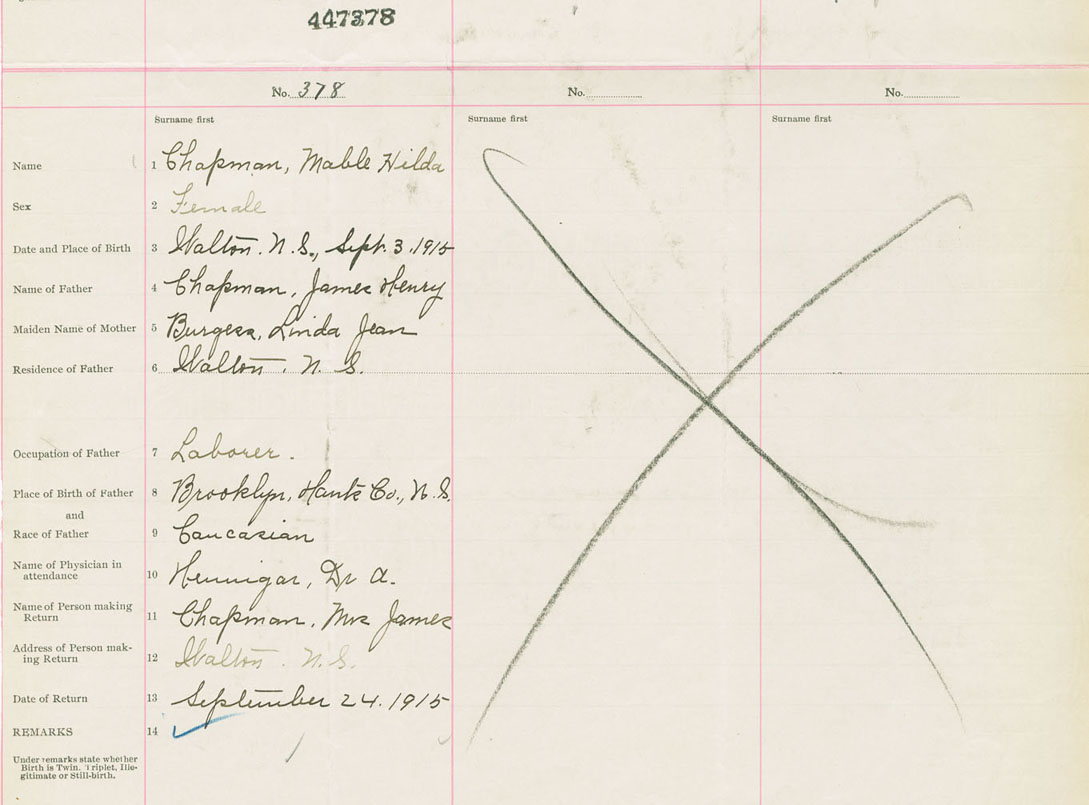 447378
No. 378 No. No.
Surname first Surname first Surname first
Name 1 Chapman, Mable Hilda
Sex 2 Female
Date and Place of Birth 3 Walton. N. S., Sept. 3. 1915
Name of Father 4 Chapman, James Henry
Maiden Name of Mother 5 Burgess, Linda Jean
Residence of Father 6 Walton, N. S.
Occupation of Father 7 Laborer.
Place of Birth of Father 8 Brooklyn, Hants Co., N. S.
and
Race of Father 9 Caucasian
Name of Physician in
attendance 10 Hennigar, Dr A.
Name of Person making
Return 11 Chapman, Mrs James
Address of Person mak-
ing Return 12 Walton. N. S.
Date of Return 13 September 24. 1915
REMARKS 14
Under remarks state whether
Birth is Twin, Triplet, Ille-
gitimate or Still-birth.